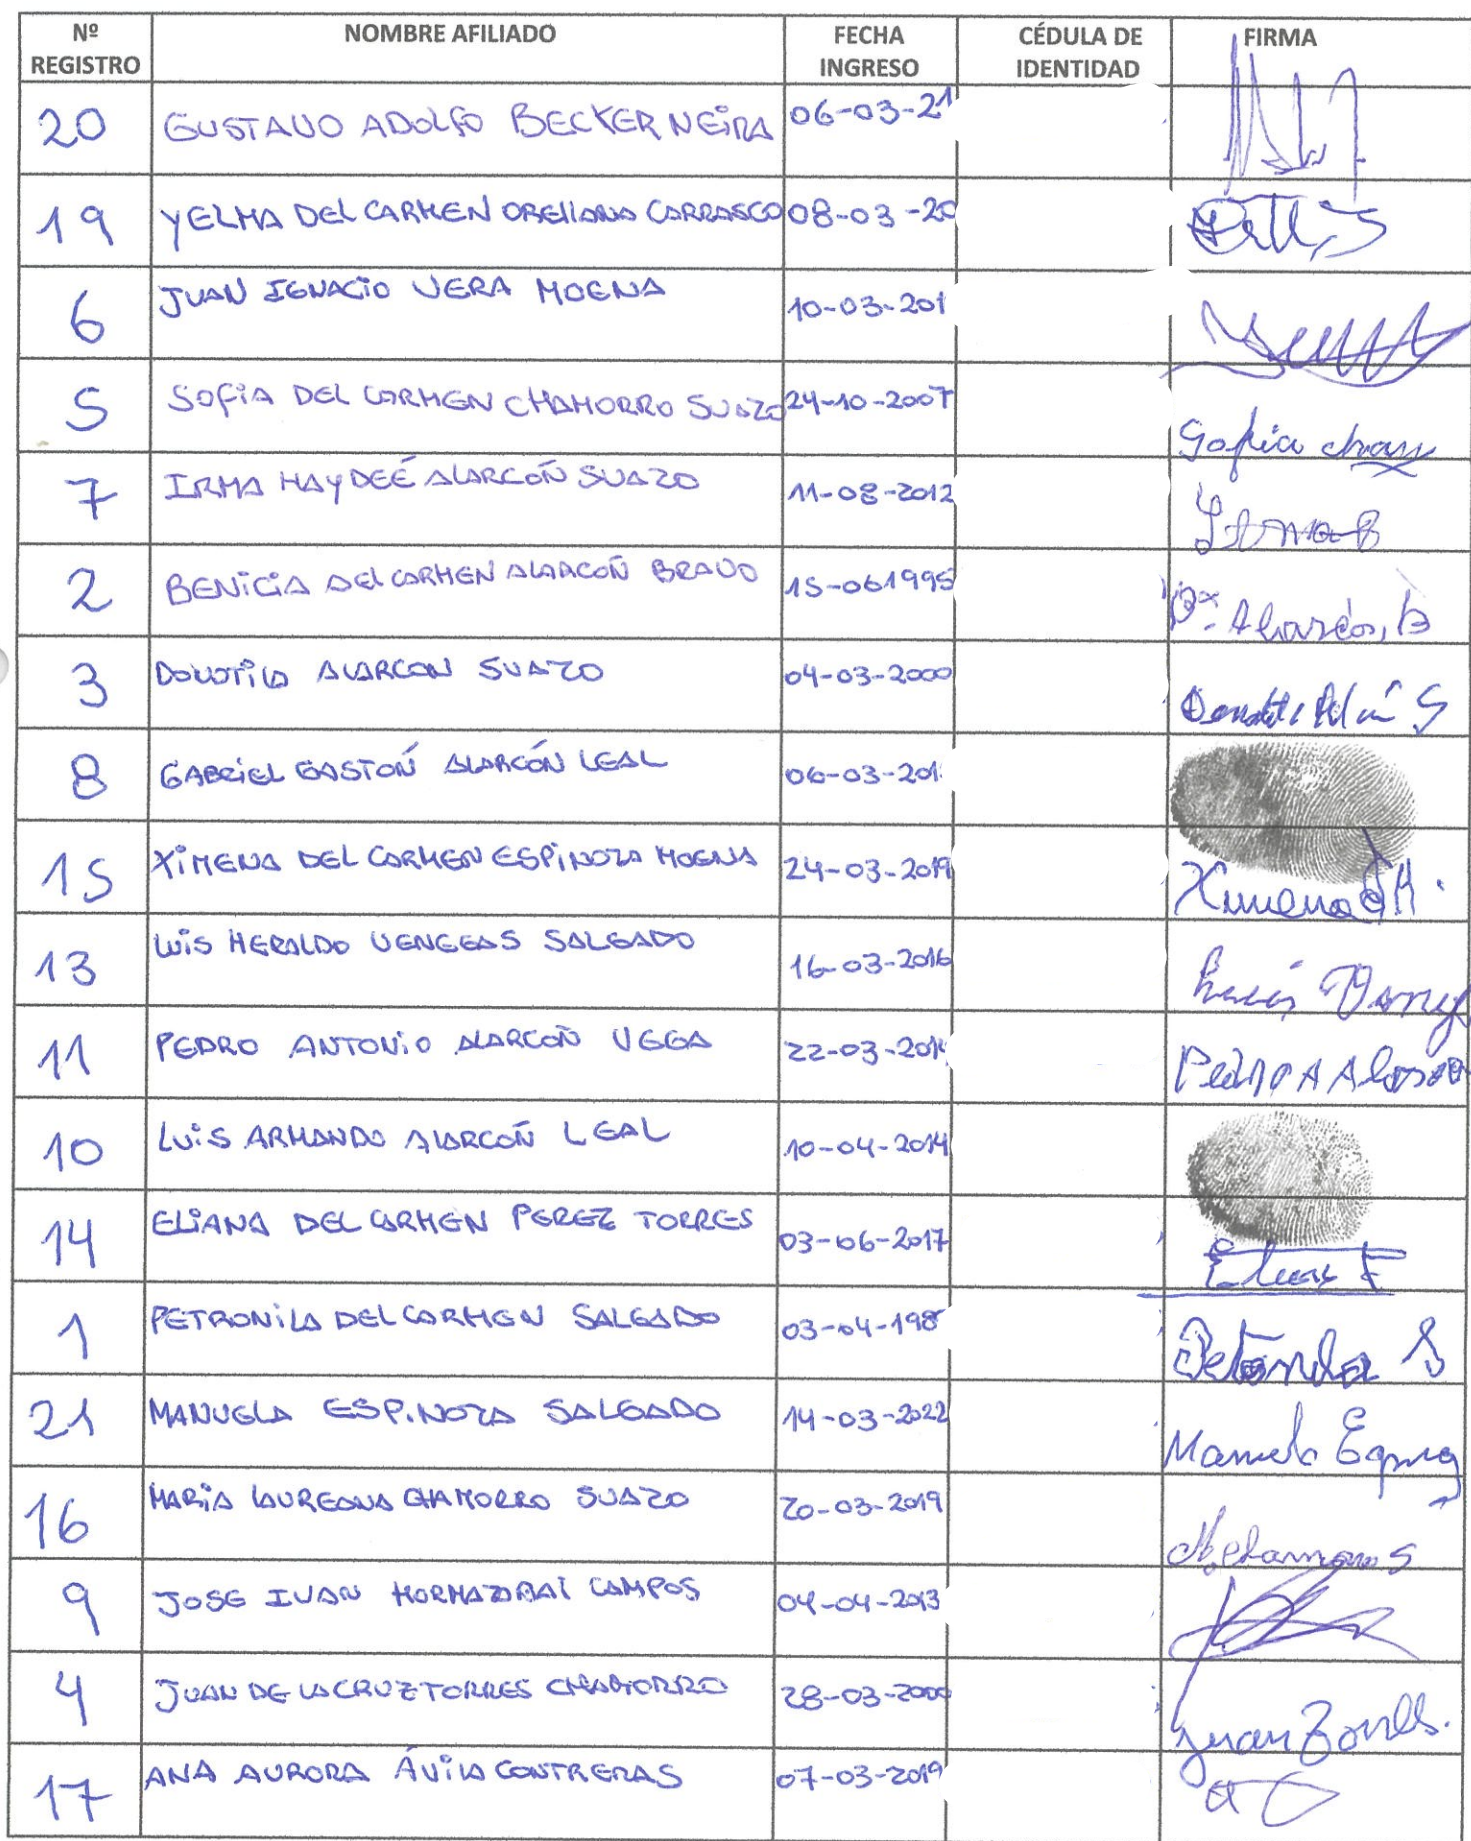 Nº REGISTRO NOMBRE AFILIADO FECHA INGRESO CÉDULA DE IDENTIDAD FIRMA
20 GUSTAVO ADOLFO BECKER NEIRA 06-03-21
19 YELMA DEL CARMEN ORELLANA CARRASCO 08-03-20
6 JUAN IGNACIO VERA MOENA 10-03-201
5 SOFIA DEL CARMEN CHAMORRO SUAZO 24-10-2007 Sofia cham
7 IRMA HAYDEÉ ALARCÓN SUAZO 11-08-2012 Irma
2 BENICIA DEL CARMEN ALARCÓN BRAVO 15-061995 Alarcón, B
3 DOMITILA ALARCON SUAZO 04-03-2000
8 GABRIEL GASTÓN ALARCÓN LEAL 06-03-201
15 XIMENA DEL CARMEN ESPINOZA MOENA 24-03-2019 Ximena
13 LUIS HERALDO VENEGAS SALGADO 16-03-2016 Luis
11 PEDRO ANTONIO ALARCÓN VEGA 22-03-2014 Pedro A Alarcon
10 LUIS ARMANDO ALARCÓN LEAL 10-04-2014
14 ELIANA DEL CARMEN PEREZ TORRES 03-06-2017
1 PETRONILA DEL CARMEN SALGADO 03-04-198 Petronila S
21 MANUELA ESPINOZA SALGADO 14-03-2022 Manuela
16 MARÍA LAUREANA CHAMORRO SUAZO 20-03-2019
9 JOSE IVAN HORMAZABAL CAMPOS 04-04-2013
4 JUAN DE LA CRUZ TORRES CHAMORRO 28-03-2000 Juan
17 ANA AURORA ÁVILA CONTRERAS 07-03-2019